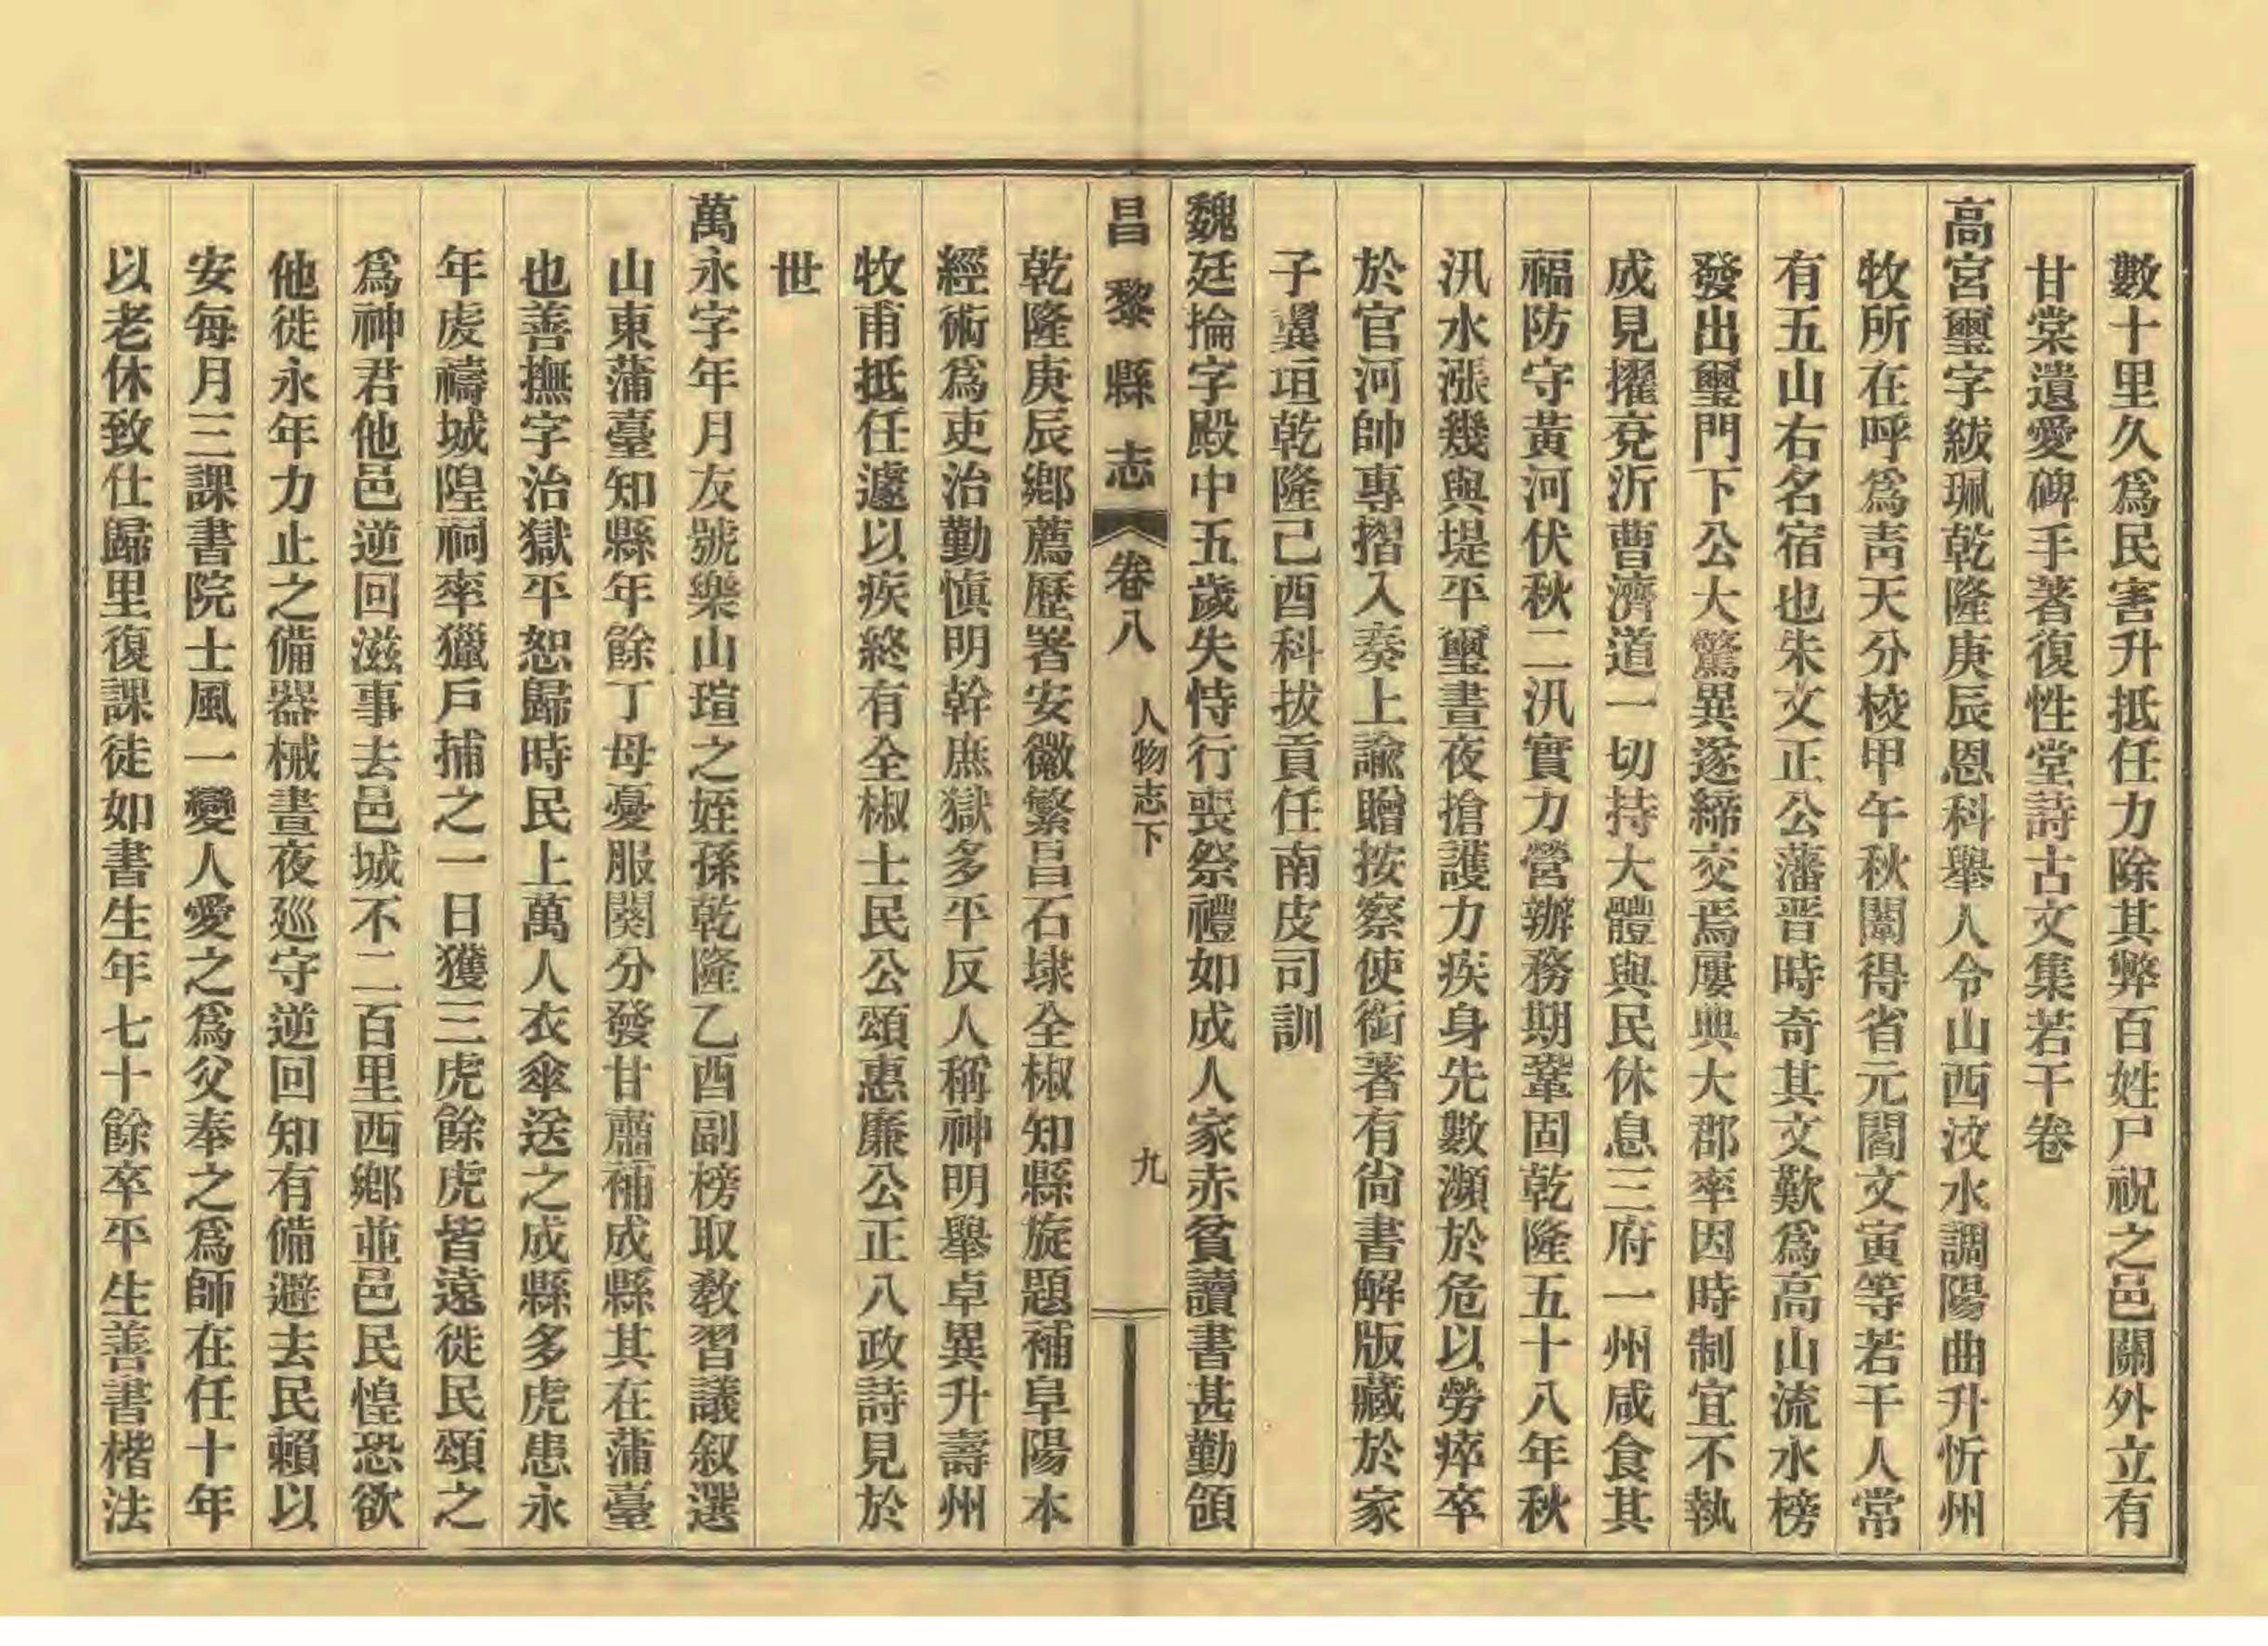 數十里久爲民害升抵任力除其弊百姓尸祝之邑關外立有
甘棠遺愛碑手著復性堂詩古文集若干卷
高宮璽字紱珮乾隆庚辰恩科舉人令山西汶水調陽曲升忻州
牧所在呼爲靑天分校甲午秋闈得省元閻文寅等若干人常
有五山右名宿也朱文正公藩晋時奇其文歎爲高山流水榜
發出璽門下公大驚異遂締交焉屢典大郡率因時制宜不執
成見擢兗沂曹濟道一切持大體與民休息三府一州咸食其
福防守黃河伏秋二汛實力營辦務期鞏固乾隆五十八年秋
汛水漲幾與堤平璽晝夜搶護力疾身先數瀕於危以勞瘁卒
於官河帥專摺入奏上諭贈按察使銜著有尙書解版藏於家
子翼垣乾隆己酉科拔貢任南皮司訓
魏廷掄字殿中五歲失恃行喪祭禮如成人家赤貧讀書甚勤領
昌黎縣志 卷八 人物志下 九
乾隆庚辰鄕薦歷署安徽繁昌石埭全椒知縣旋題補阜陽本
經術爲吏治勤愼明幹庶獄多平反人稱神明舉卓異升壽州
牧甫抵任遽以疾終有全椒士民公頌惠廉公正八政詩見於
世
萬永字年月友號樂山瑄之姪孫乾隆乙酉副榜取敎習議叙選
山東蒲臺知縣年餘丁母憂服闋分發甘肅補成縣其在蒲臺
也善撫字治獄平恕歸時民上萬人衣傘送之成縣多虎患永
年虔禱城隍祠率獵戶捕之一日獲三虎餘虎皆遠徙民頌之
爲神君他邑逆回滋事去邑城不二百里西鄕並邑民惶恐欲
他徙永年力止之備器械晝夜廵守逆回知有備避去民賴以
安每月三課書院士風一變人愛之爲父奉之爲師在任十年
以老休致仕歸里復課徒如書生年七十餘卒平生善書楷法